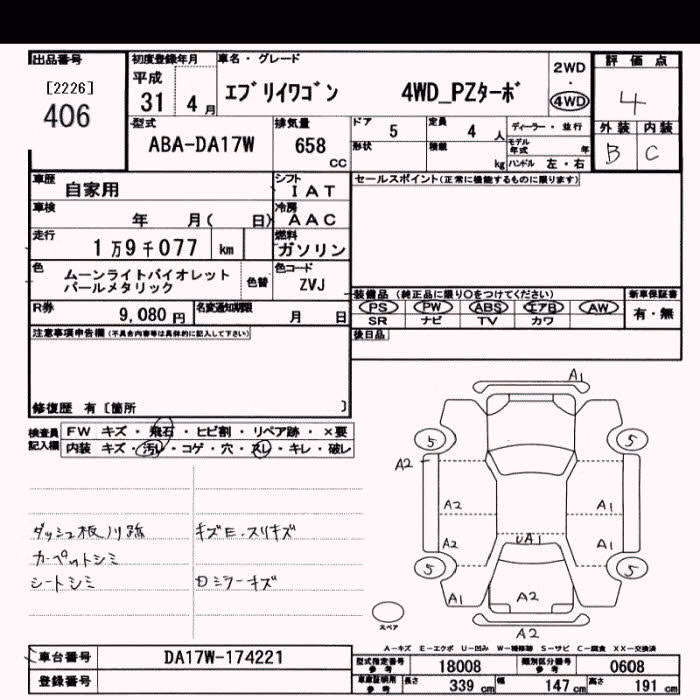 出品番号
[2226]
406
初度登録年月
平成
31 4 月
車名・グレード
エブリイワゴン 4WD_PZターボ
2WD
・
4WD
評価点
4
外装 内装
B C
型式
ABA-DA17W
排気量
658
CC
ドア 5
定員 4 人
ディーラー・並行
形状
積載 kg
モデル年式 年
ハンドル 左・右
車歴 自家用
シフト IAT
車検 年 月( 日)
冷房 AAC
走行 1万9千077 km
燃料 ガソリン
色 ムーンライトバイオレット
パールメタリック
色替
色コード ZVJ
R券 9,080 円
名変通知期限 月 日
セールスポイント(正常に機能するものに限ります)
装備品 (純正品に限り○をつけてください)
PS PW ABS エアB AW
SR ナビ TV カワ
新車保証書
有・無
後日品
注意事項申告欄(不具合内容等は具体的に記入して下さい)
修復歴 有 [箇所 ]
検査員記入欄
FW キズ・飛石・ヒビ割・リペア跡・×要
内装 キズ・汚レ・コゲ・穴・スレ・キレ・破レ
ダッシュ板ノリ跡 キズE.スリキズ
カーペットシミ
シートシミ ロミラーキズ
A1
5 5
A2
A2 A1
A2 UA1 A1
5 5
A1 A2
A2
スペア
A-キズ E-エクボ U-凹み W-補修跡 S-サビ C-腐食 XX-交換済
車台番号 DA17W-174221
登録番号
型式指定番号 参考 18008
類別区分番号 参考 0608
車庫証明用 参考 長さ 339 cm 幅 147 cm 高さ 191 cm